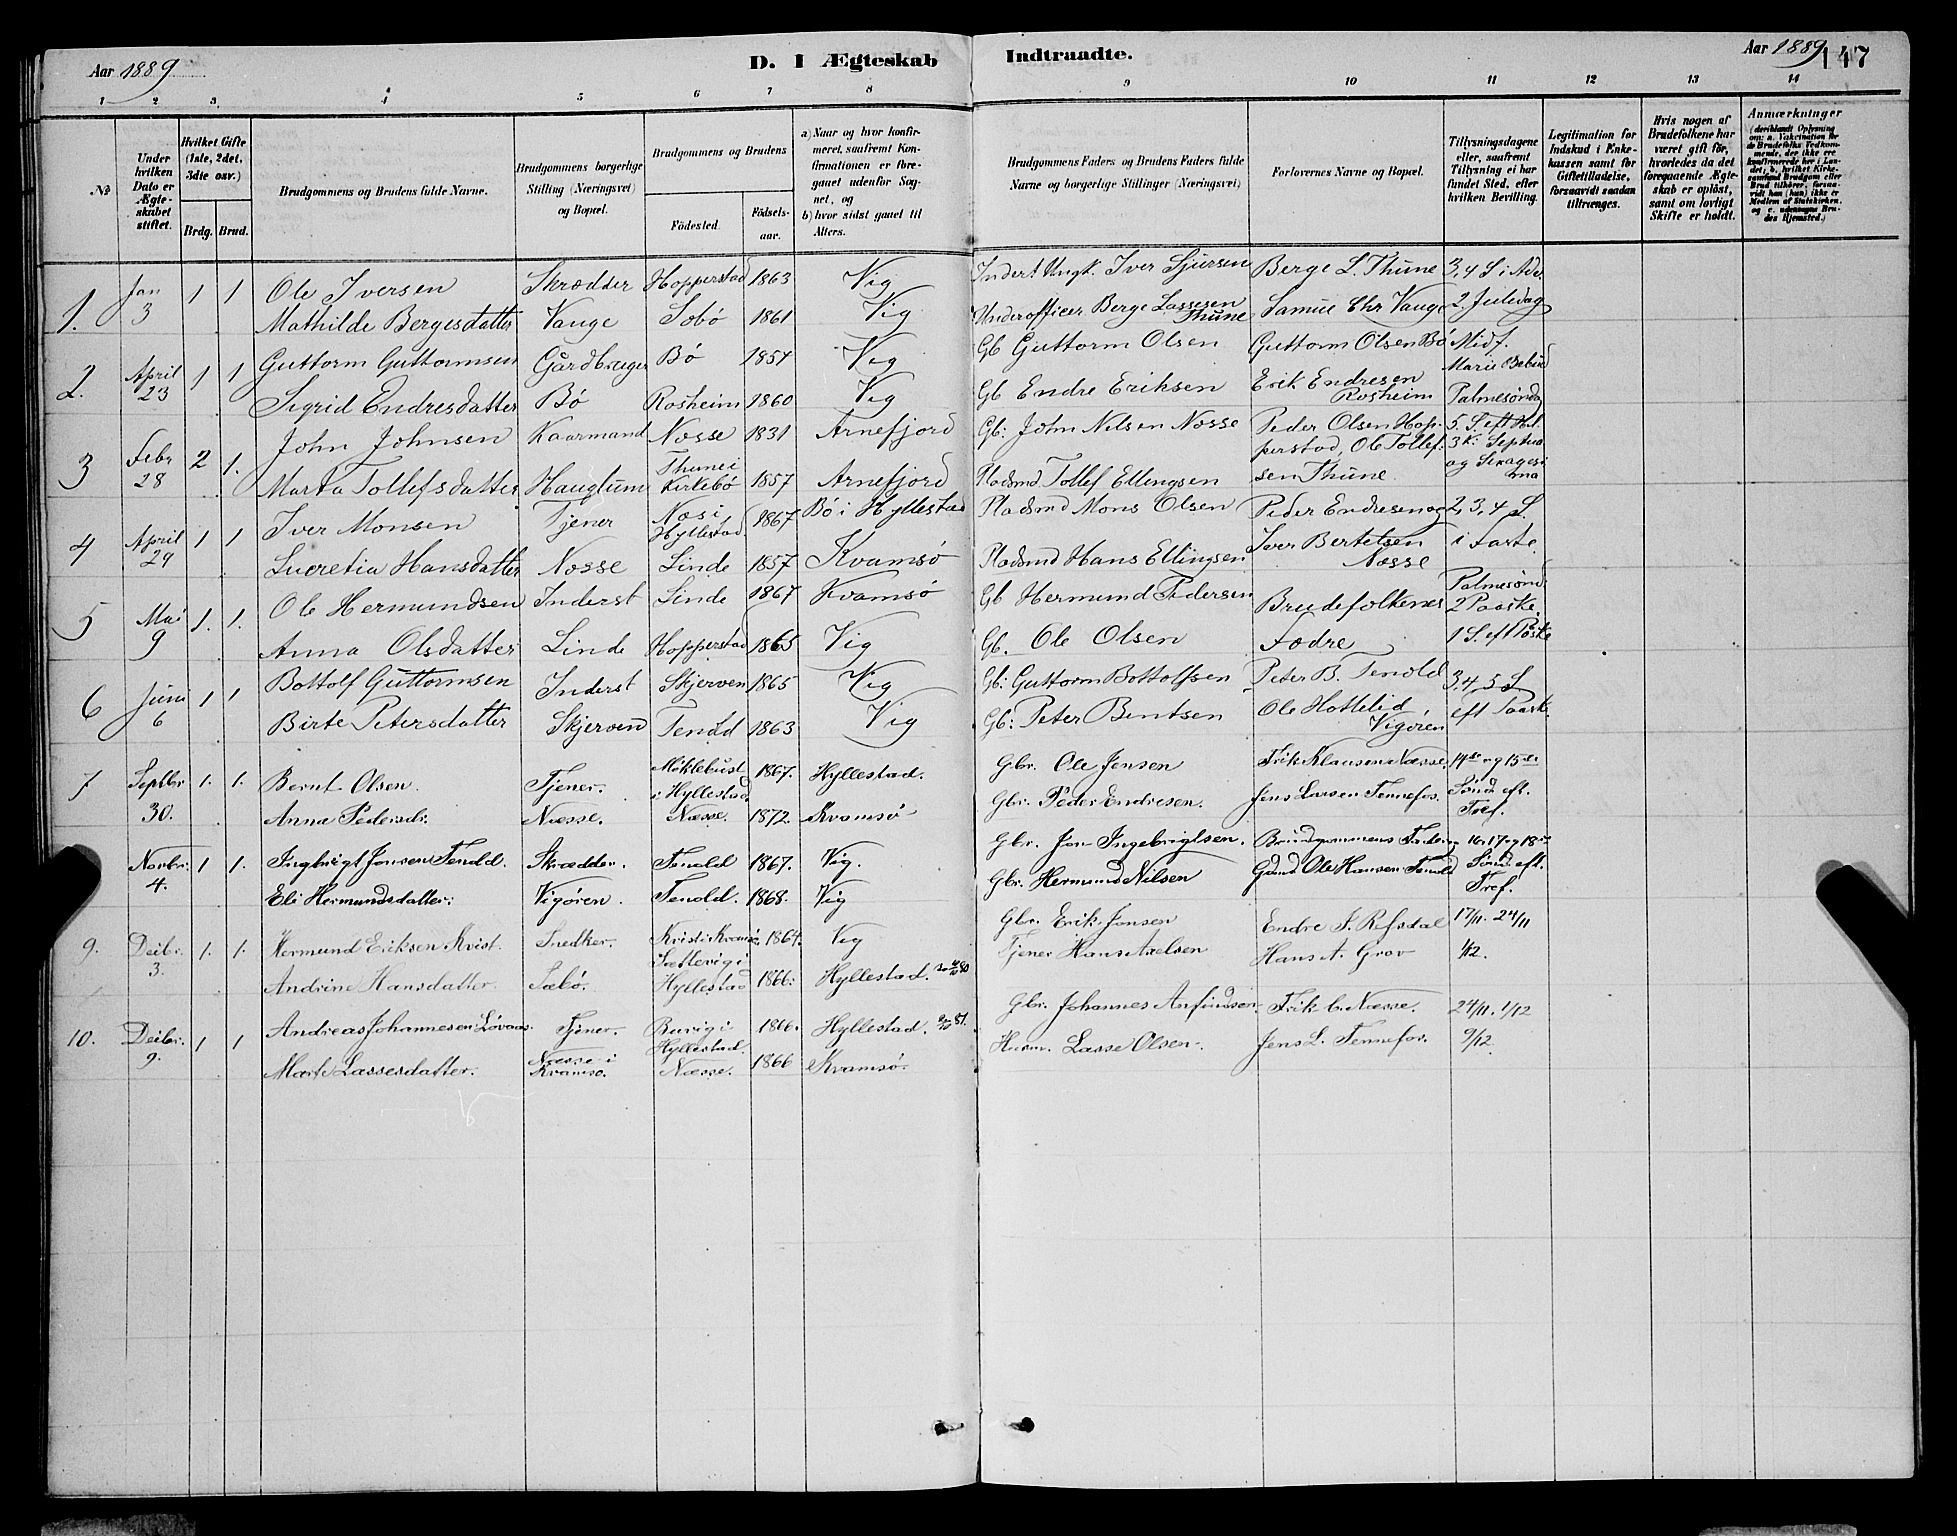 Aar 1889
D. I Ægteskab
Indtraadte.
Aar 1889
147
1 2 3. 4 5 6 7 8 9 10 11 12 13 14
No
Under hvilken Dato er Ægteskabet stiftet.
Hvilket Gifte (1ste, 2det, 3die osv.)
Brdg. Brud.
Brudgommens og Brudens fulde Navne.
Brudgommens borgerlige Stilling (Næringsvei) og Bopæl.
Brudgommens og Brudens
Födested.
Födsels-aar.
a) Naar og hvor konfirmeret, saafremt Konfirmationen er foregaaet udenfor Sognet, og
b) hvor sidst gaaet til Alters.
Brudgommens Faders og Brudens Faders fulde Navne og borgerlige Stillinger (Næringsvei)
Forlovernes Navne og Bopæl.
Tillysningsdagene eller, saafremt Tillysning ei har fundet Sted, efter hvilken Bevilling.
Legitimation for Indskud i Enkekassen samt for Giftetilladelse, forsaavidt saadan tiltrænges.
Hvis nogen af Brudefolkene har været gift før, hvorledes da det foregaaende Ægteskab er opløst, samt om lovligt Skifte er holdt.
Anmærkninger
(deriblandt Oplysning om: a. Vakcination for de Brudefolks Vedkommende, der ikke ere konfirmerede her i Landet; b. hvilket Kirkesamfund Brudgom eller Brud tilhører, forsaavidt han (hun) ikke er Medlem af Statskirken, og c. udensogns Brudes Hjemsted.)
1. Jan 3 1 1 Ole Iversen Skrædder Hopperstad 1863 Vig Inderst Ungk. Iver Sjursen Berge L. Thune 3, 4 S i Adv.
Mathilde Bergesdatter Vange Sobö 1861 Vig Underofficer Berge Lassesen Thune Samuel Chr Vange 2 Juledag
2. April 23 1 1 Guttorm Guttormsen Gårdbruger Bö 1857 Vig Gb Guttorm Olsen Guttorm Olsen Bö Midf.
Sigrid Endresdatter Bö Rosheim 1860 Vig Gb Endre Eriksen Erik Endresen Rosheim Marie Bebud Palmesöndag
3 Febr 28 2 1. John Johnsen Kaarmand Nosse 1831 Arnefjord Gb: John Nilsen Nosse Peder Olsen Hopperstad, Ole Tollef- 5. S. eft Hel.
Marta Tollefsdatter Hauglum Thune i Kirkebö 1857 Arnefjord Pladsmd Tollef Ellingsen sen Thune 3 K. Septua og Sexagesima
4 April 29 1 1 Iver Monsen Tjener Nos i Hyllestad 1867 Bö i Hyllestad Pladsmd Mons Olsen Peder Endresen og 2, 3, 4 S.
Lucretia Hansdatter Nosse Linde 1857 Kvamsö Pladsmd Hans Ellingsen Iver Bertelsen Nosse i Faste.
5 Mai 9 1. 1. Ole Hermundsen Inderst Linde 1867 Kvamsö Gb Hermund Pedersen Brudefolkenes Palmesönd. 2 Paaske.
Anna Olsdatter Linde Hopperstad 1865 Vig Gb. Ole Olsen Fædre 1 S. eft Påske
6 Juni 6 1 1 Bottolf Guttormsen Inderst Skjerven 1865 Vig Gb: Guttorm Bottolfsen Peter B. Tenold 3, 4 5 S
Birte Petersdatter Skjerven Tenold 1863 Vig Gb: Peter Bentsen Ole Hottelid Vigören eft Paask.
7 Septbr 30. 1. 1. Bernt Olsen. Tjener. Möklebust i Hyllestad 1867. Hyllestad. Gbr. Ole Jensen Erik Klausen Næsse. 14de og 15de
Anna Pedersdr. Næsse. Næsse. 1872. Kvamsö Gbr. Peder Endresen. Jens Larsen Tennefos. Sönd. eft. Tref.
Novbr. 4. 1 1. Ingbrigt Jonsen Tenold. Skrædder. Tenold 1867. Vig. Gbr. Jon Ingebrigtsen. Brudgommens Fader og 16. 17 og 18de
Eli Hermundsdatter. Vigören. Tenold. 1868. Vig Gbr. Hermund Nilsen Gaard Ole Hansen Tenold Sönd. eft. Tref.
9. Decbr. 3. 1. 1. Hermund Eriksen Kvist. Snedker. Kvist i Kvamsö. 1864. Vig Gbr. Erik Jensen Endre J. Refsdal 17/11. 24/11
Andrine Hansdatter. Sæbö. Sætlevig i Hyllestad 1866. Hyllestad. Tjener Hans Axelsen Hans A. Grov 1/12.
10. Decbr. 9. 1 1 Andreas Johannesen Lövaas. Tjener. Risvig i Hyllestad. 1866. Hyllestad. Gbr. Johannes Anfindsen. Erik C. Næsse. 24/11. 1/12
Marte Lassesdatter. Næsse i Kvamsö. Næsse. 1866 Kvamsö. Husm. Lasse Olsen. Jens L. Tennefos. 9/12.